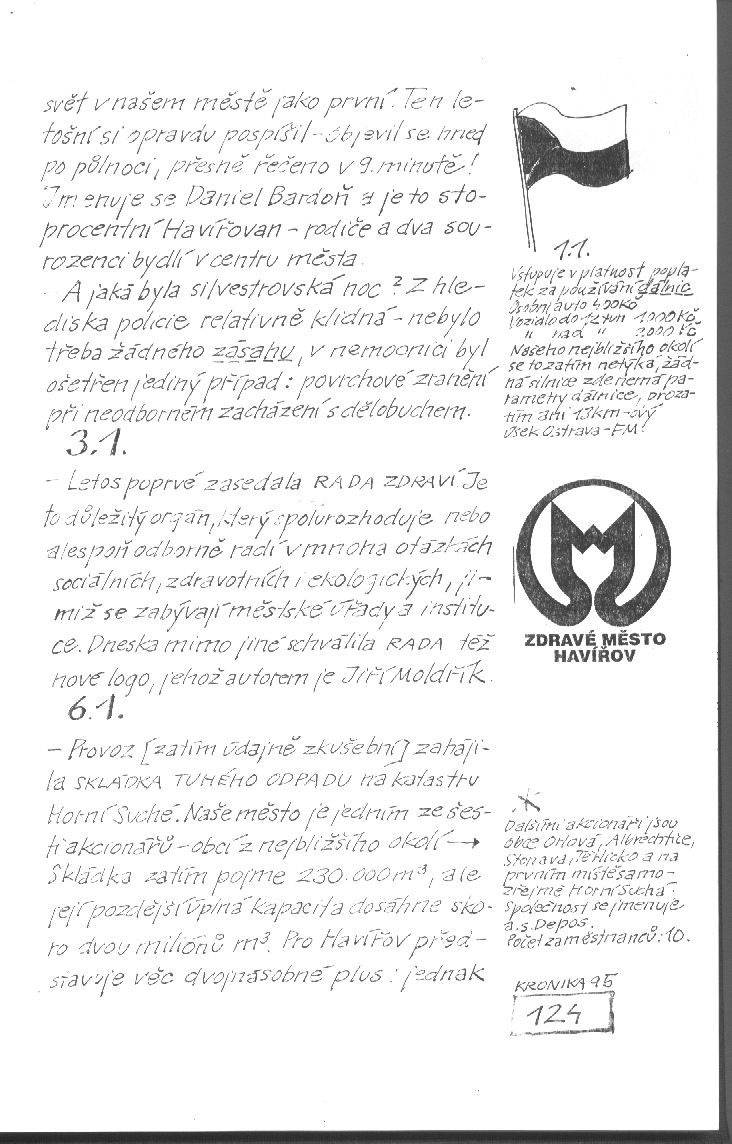 svět v našem městě jako první. Ten le-
tošní si opravdu pospíšil - objevil se hned
po půlnoci, přesně řečeno v 9. minutě!
Jmenuje se Daniel Bardoň a je to sto-
procentní Havířovan - rodiče a dva sou-
rozenci bydlí v centru města.
A jaká byla silvestrovská noc? Z hle-
diska policie relativně klidná - nebylo
třeba žádného zásahu, v nemocnici byl
ošetřen jediný případ: povrchové zranění
při neodborném zacházení s dělobuchem.
3.1.
- Letos poprvé zasedala RADA ZDRAVÍ. Je
to důležitý orgán, který spolurozhoduje nebo
alespoň odborně radí v mnoha otázkách
sociálních, zdravotních i ekologických, ji-
miž se zabývají městské úřady a institu-
ce. Dneska mimo jiné schválila RADA též
nové logo, jehož autorem je Jiří Moldřík.
6.1.
- Provoz [zatím údajně zkušební] zaháji-
la SKLÁDKA TUHÉHO ODPADU na katastru
Horní Suché. Naše město je jedním ze šes-
ti akcionářů - obcí z nejbližšího okolí →
Skládka zatím pojme 230.000 m³, ale
její pozdější úplná kapacita dosáhne sko-
ro dvou miliónů m³. Pro Havířov před-
stavuje věc dvojnásobné plus: jednak
1.1.
Vstupuje v platnost popla-
tek za používání dálnic
Osobní auto 400 Kč
Vozidlo do 12 tun 1.000 Kč
" nad " 2000 Kč
Našeho nejbližšího okolí
se to zatím netýká, žád-
ná silnice zde nemá pa-
rametry dálnice, proza-
tím ani 13 km-ový
úsek Ostrava - FM!
ZDRAVÉ MĚSTO
HAVÍŘOV
*
Dalšími akcionáři jsou
obce Orlová, Albrechtice,
Stonava, Těrlicko a na
prvním místě samo-
zřejmě Horní Suchá.
Společnost se jmenuje
a.s. Depos.
Počet zaměstnanců: 10.
KRONIKA 95
124